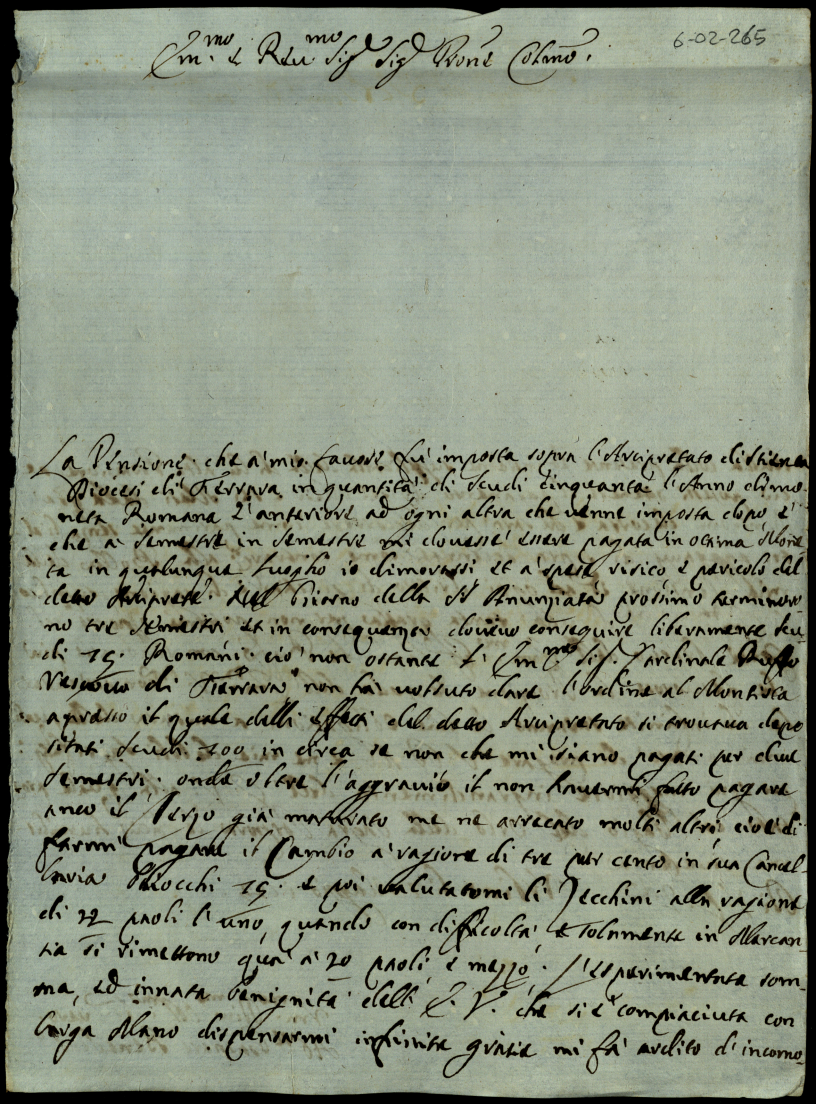 6-02-265
Em.mo e Reu.mo Sig.r Sig.r Prone Colmo.
La Pensione che a' mio fauore fu' imposta sopra l'Arcipretato di
Diocesi di Ferrara in quantita' di Scudi cinquanta l'Anno di mo-
neta Romana è anteriore ad ogni altra che uenne imposta dopo, e'
che a' semestre in semestre mi douesse' essere pagata in ottima Mone
ta in qualunque luogho io dimorassi et a' spese risico e pericolo del
detto Arciprete. Nel Giorno della SS Anunziata prossimo terminoro
no tre semestri et in consequenza doueuo conseguire liberamente scu
di 75. Romani. cio' non ostante l' Em.mo Sig. Cardinale Ruffo
Vescouo di Ferrara non ha' uolsuto dare l'ordine al Montista
apresso il quale delli effetti del detto Arcipretato si trouaua depo
sitati Scudi 100 in circa se non che mi siano pagati per due
Semestri. onde oltre l'aggrauio il non hauermi fatto pagare
anco il Terzo gia' maturato me ne arrecato molti altri cioè di
farmi pagare il Cambio a' ragione di tre per cento in sua Cancel-
laria Baiocchi 75. e poi ualutatomi li Zecchini alla ragione
di 22 paoli l'uno, quando con difficolta' e solamente in Mercan-
tia si rimettono qua' a' 20 paoli e mezzo. L'esperimentata som-
ma, ed innata benignita' dell' E. V. che si è compiaciuta con
larga Mano dispensarmi infinite gratie mi fa' ardito d'incomo-